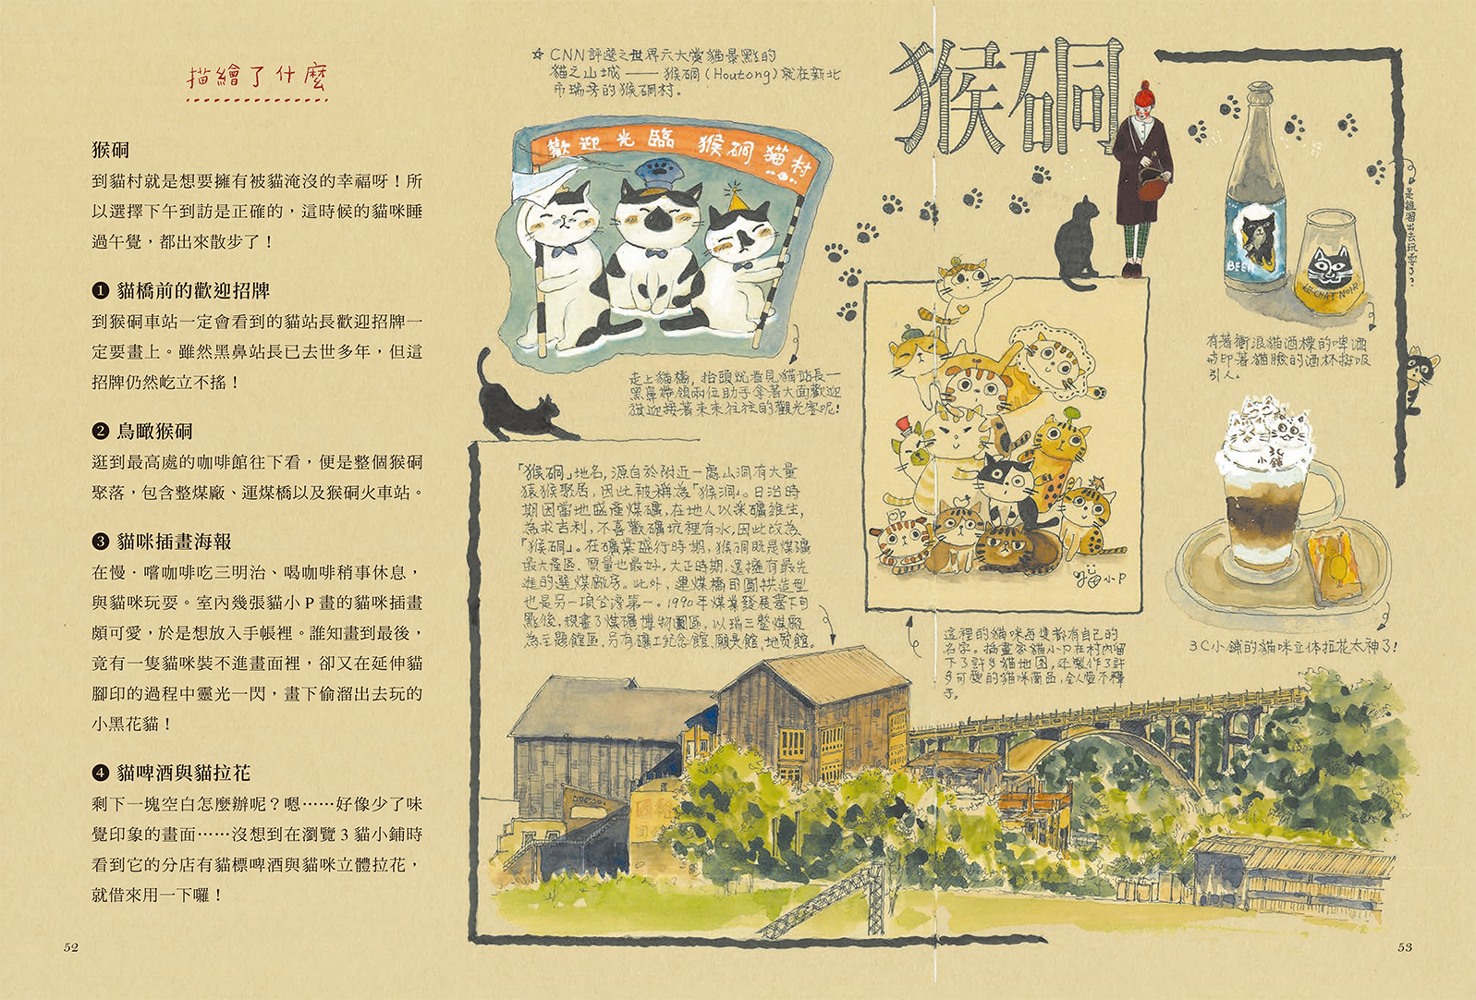 描繪了什麼
猴硐
到貓村就是想要擁有被貓淹沒的幸福呀！所
以選擇下午到訪是正確的，這時候的貓咪睡
過午覺，都出來散步了！
❶ 貓橋前的歡迎招牌
到猴硐車站一定會看到的貓站長歡迎招牌一
定要畫上。雖然黑鼻站長已去世多年，但這
招牌仍然屹立不搖！
❷ 鳥瞰猴硐
逛到最高處的咖啡館往下看，便是整個猴硐
聚落，包含整煤廠、運煤橋以及猴硐火車站。
❸ 貓咪插畫海報
在慢．嚐咖啡吃三明治、喝咖啡稍事休息，
與貓咪玩耍。室內幾張貓小 P 畫的貓咪插畫
頗可愛，於是想放入手帳裡。誰知畫到最後，
竟有一隻貓咪裝不進畫面裡，卻又在延伸貓
腳印的過程中靈光一閃，畫下偷溜出去玩的
小黑花貓！
❹ 貓啤酒與貓拉花
剩下一塊空白怎麼辦呢？嗯⋯⋯好像少了味
覺印象的畫面⋯⋯沒想到在瀏覽 3 貓小鋪時
看到它的分店有貓標啤酒與貓咪立體拉花，
就借來用一下囉！
52
☆ CNN評選之世界六大賞貓景點的
貓之山城——猴硐(Houtong)就在新北
市瑞芳的猴硐村。
猴硐
歡迎光臨 猴硐貓村
走上貓橋，抬頭就看見貓站長—
黑鼻帶領兩位助手拿著大面歡迎
旗迎接著來來往往的觀光客呢!
「猴硐」地名，源自於附近一處山洞有大量
猿猴聚居，因此被稱為「猴洞」。日治時
期因當地盛產煤礦，在地人以采礦維生，
為求吉利，不喜歡礦坑裡有水，因此改為
「猴硐」。在礦業盛行時期，猴硐既是煤礦
最大產區、質量也最好，大正時期，還擁有最先
進的選煤廠房。此外，運煤橋司圓拱造型
也是另一項台灣第一。1990年煤業發展畫下句
點後，規畫了煤礦博物園區，以瑞三整煤廠
為主題館區，另有礦工紀念館、願景館、地質館。
貓小P
這裡的貓咪每隻都有自己的
名字。插畫家貓小P在村內留
下了許多貓地圖，還製作了許
多可愛的貓咪商品，令人愛不釋
手。
BEER
LE CHAT NOIR
是誰溜出去玩耍了?
有著衝浪貓酒標的啤酒
與印著貓臉的酒杯超吸
引人。
3C
小鋪
3C小鋪的貓咪立体拉花太神了!
53